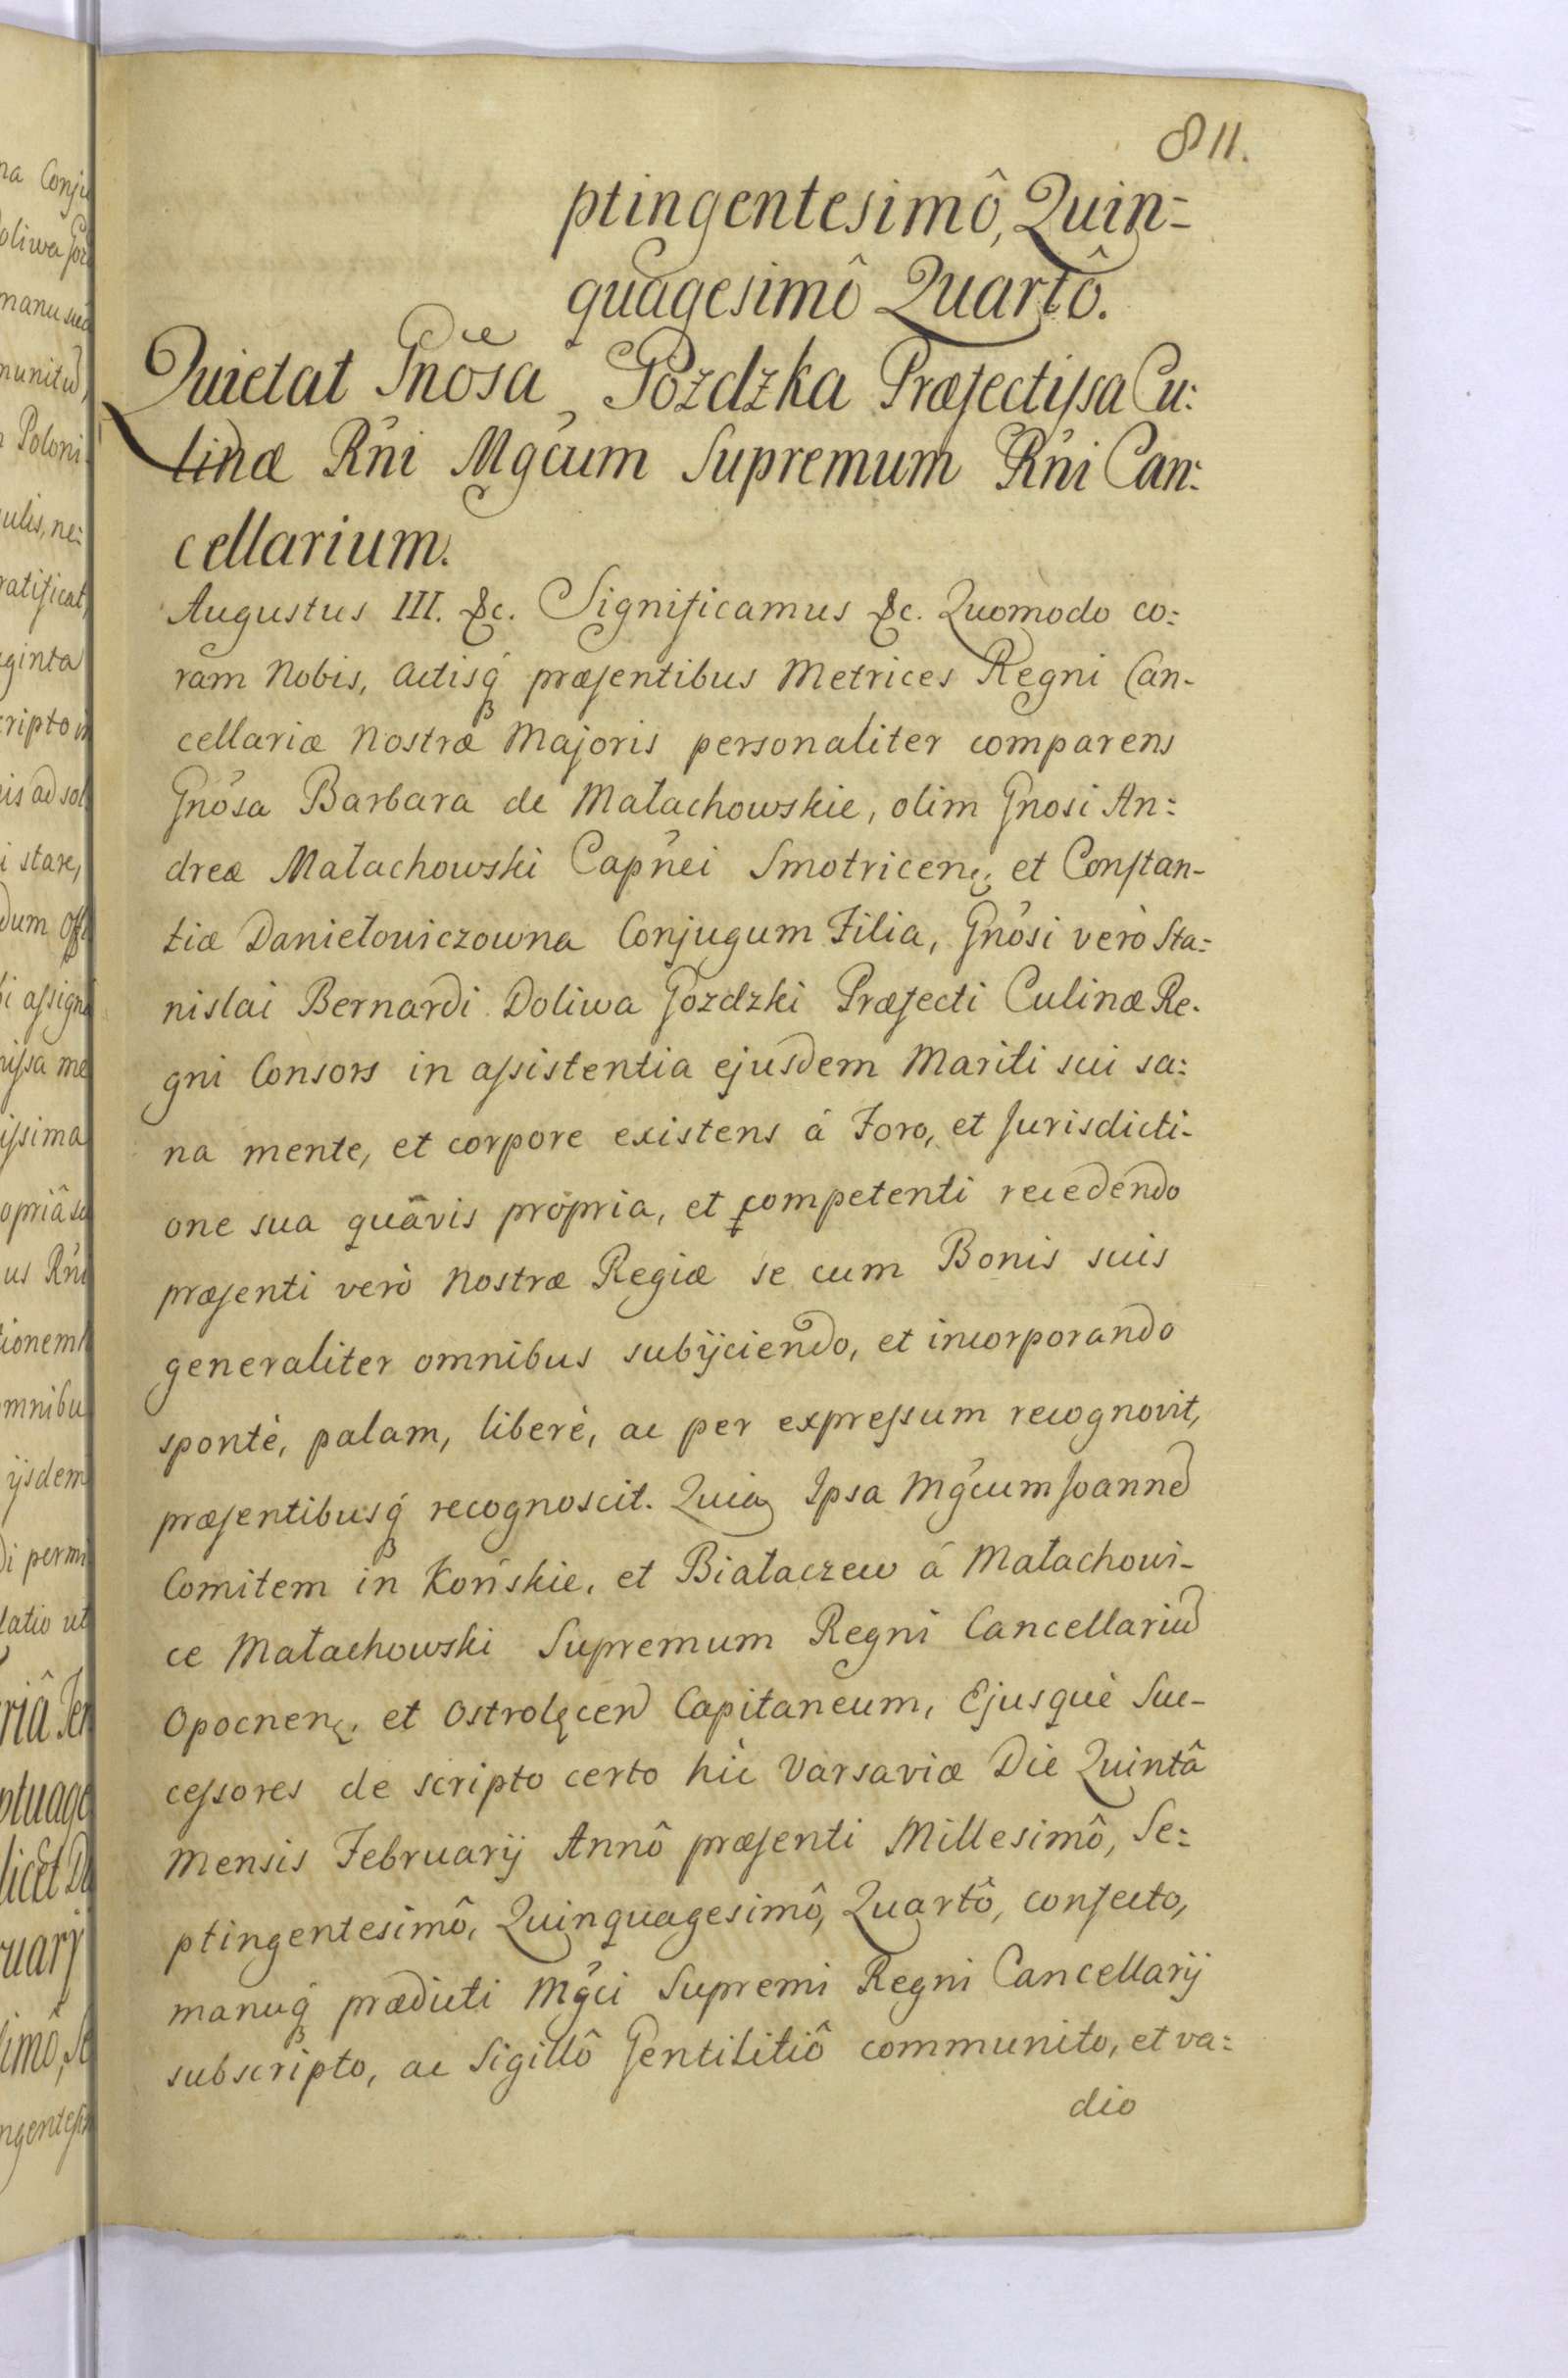 811.
ptingentesimô, Quin=
quagesimô Quartô.
Quietat Gnosa Gozdzka Præfectissa Cu:
linæ Rñi Mgcum Supremum Rñi Can:
cellarium.
Augustus III. &c. Significamus &c. Quomodo co:
ram Nobis, actisq́ præsentibus Metrices Regni Can-
cellariæ Nostræ Majoris personaliter comparens
Gnosa Barbara de Małachowskie, olim Gnosi An:
dreæ Małachowski Capnei Smotricen. et Constan-
tiæ Daniełowiczowna Conjugum Filia, Gnosi verò Sta:
nislai Bernardi Doliwa Gozdzki Præfecti Culinæ Re-
gni Consors in assistentia ejusdem Mariti sui sa:
na mente, et corpore existens á Foro, et Jurisdicti-
one sua quâvis propria, et competenti recedendo
præsenti verò Nostræ Regiæ se cum Bonis suis
generaliter omnibus subijciendo, et incorporando
spontè, palam, liberè, ac per expressum recognovit,
præsentibusq́ recognoscit. Quia Ipsa Mgcum Joannem
Comitem in Końskie, et Białaczew á Małachowi-
ce Małachowski Supremum Regni Cancellarium
Opocnen. et Ostrolęcen Capitaneum, Ejusquè Suc-
cessores de scripto certo hic Varsaviæ Die Quintâ
Mensis Februarij Annô præsenti Millesimô, Se:
ptingentesimô, Quinquagesimô, Quartô, confecto,
manuq́ prædicti Mgci Supremi Regni Cancellarij
subscripto, ac Sigillô Gentilitiô communito, et va:
dio